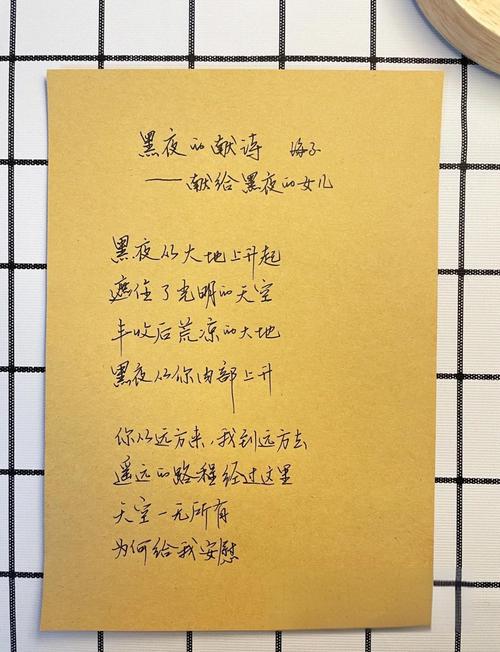 黑夜的献诗 海子
——献给黑夜的女儿
黑夜从大地上升起
遮住了光明的天空
丰收后荒凉的大地
黑夜从你内部上升
你从远方来，我到远方去
遥远的路程经过这里
天空一无所有
为何给我安慰